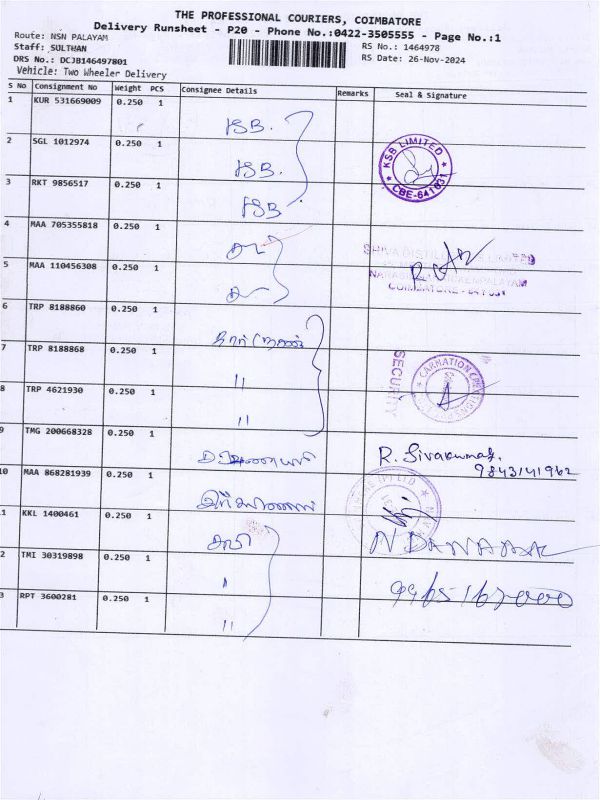 THE PROFESSIONAL COURIERS, COIMBATORE
Delivery Runsheet - P20 - Phone No.:0422-3505555 - Page No.:1
Route: NSN PALAYAM
RS No.: 1464978
Staff: SULTHAN
RS Date: 26-Nov-2024
DRS No.: DCJB146497801
Vehicle: Two Wheeler Delivery
S No Consignment No Weight PCS Consignee Details Remarks Seal & Signature
1 KUR 531669009 0.250 1 KSB.
2 SGL 1012974 0.250 1 KSB.
KSB LIMITED
CBE-641031
3 RKT 9856517 0.250 1 KSB
4 MAA 705355818 0.250 1
LIMITED
5 MAA 110456308 0.250 1
COIMBATORE
6 TRP 8188860 0.250 1
7 TRP 8188868 0.250 1 "
SECURITY
CARNATION CREATIONS
8 TRP 4621930 0.250 1 "
9 TMG 200668328 0.250 1 R. Sivakumar.
9843141962
10 MAA 868281939 0.250 1
(P) LTD
11 KKL 1400461 0.250 1
2 TMI 30319898 0.250 1
3 RPT 3600281 0.250 1 "